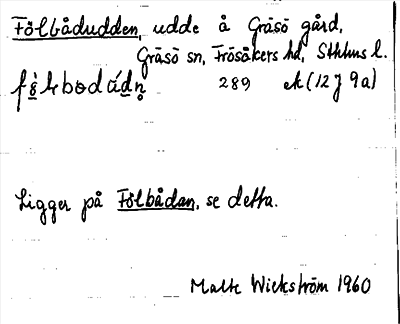 Fölbådudden, udde å Gräsö gård,
Gräsö sn, Frösåkers hd, Sthlms l.
289 ek (12J 9a)
Ligger på Fölbådan, se detta.
Malte Wickström 1960